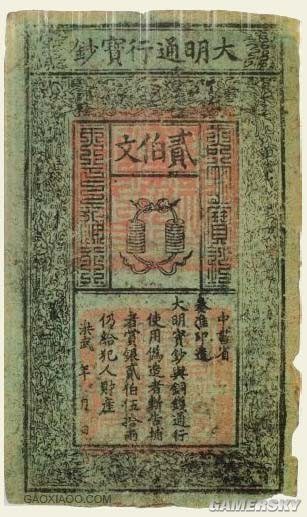 大明通行寶鈔
貳伯文
中書省
奏准印造
大明寶鈔與銅錢通行
使用偽造者斬告捕
者賞銀貳伯伍拾兩
仍給犯人財產
洪武 年 月 日
GAOXIAOO.COM
GAMERSKY